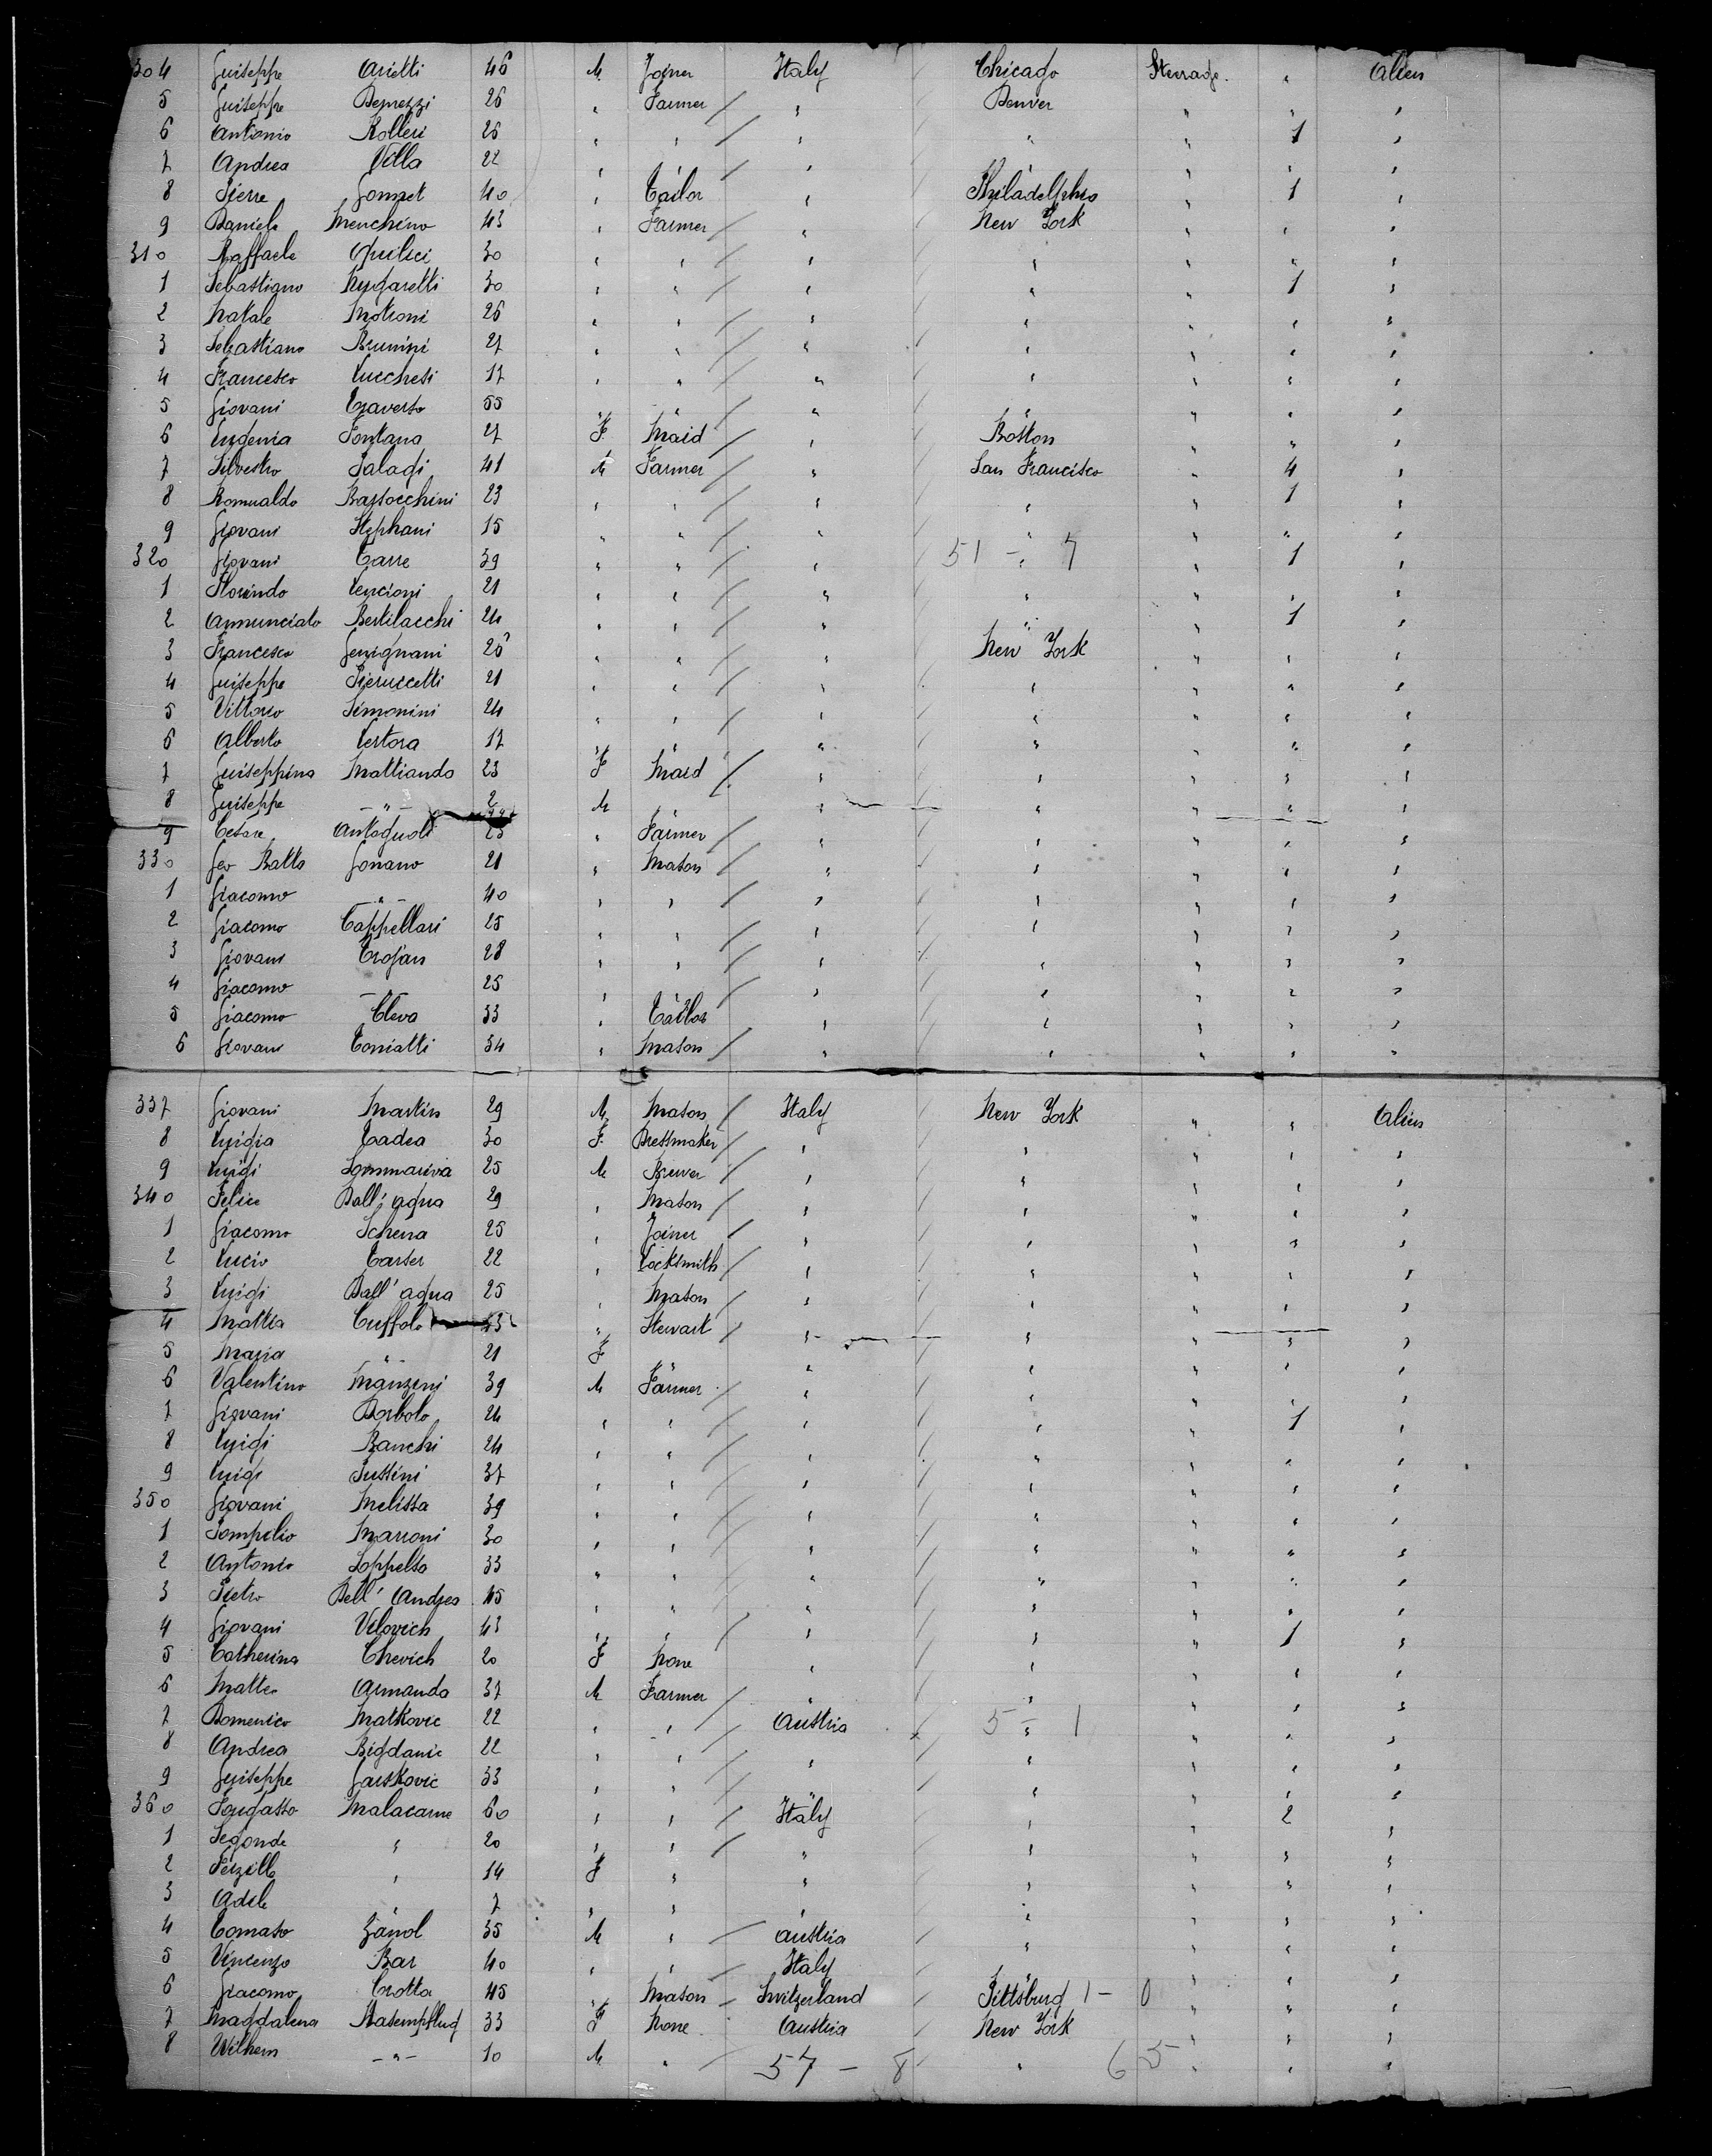 304 Guiseppe Arietti 46 M Joiner Italy Chicago Sterrage. " Alien
5 Guiseppe Demezzi 26 " Farmer / " Denver " " "
6 Antonio Rolleri 26 " " / " " " 1 "
7 Andrea Villa 22 " " / " " " " "
8 Pierre Gonnet 40 " Tailor " Philadelphia " 1 "
9 Daniele Menchino 43 " Farmer / " New York " " "
310 Raffaele Quilici 30 " " / " " " " "
1 Sebastiano 30 " " / " " " 1 "
2 Natale Motroni 26 " " / " " " " "
3 Sebastiano Brunini 27 " " / " " " " "
4 Francesco Lucchesi 17 " " / " " " " "
5 Giovani Traverso 55 " " / " " " " "
6 Eugenia Fontana 27 F. Maid / " Boston " " "
7 Silvestro Palagi 41 M Farmer / " San Francisco " 4 "
8 Romualdo Bassocchini 23 " " / " " " 1 "
9 Giovani Stephani 15 " " / " " " " "
320 Giovani Carre 39 " " / " 51 - " 7 " 1 "
1 Florindo Lencioni 21 " " / " " " " "
2 Annunciato Bertilacchi 24 " " / " " " 1 "
3 Francesco Gemignani 26 " " / " New York " " "
4 Guiseppe Pieruccetti 21 " " / " " " " "
5 Vittorio Simonini 24 " " / " " " " "
6 Alberto Vertora 17 " " / " " " " "
7 Guiseppina Mattiando 23 F Maid / " " " " "
8 Guiseppe -"- 2 M " " " " " "
9 Cesare Antognoli " Farmer / " " " " "
330 Geo Batta Gonano 21 " Mason / " " " " "
1 Giacomo -"- 40 " " / " " " " "
2 Giacomo Cappellari 25 " " / " " " " "
3 Giovani Trojan 28 " " / " " " " "
4 Giacomo -"- 25 " " / " " " " "
5 Giacomo Cleva 33 " Tailor " " " " "
6 Giovani Toniatti 34 " Mason / " " " " "
337 Giovani Martin 29 M Mason / Italy New York " " Alien
8 Luigia Cadea 30 F. Dressmaker / " " " " "
9 Luigi Sommariva 25 M Brewer / " " " " "
340 Felice Dall'aqua 29 " Mason / " " " " "
1 Giacomo Schena 25 " Joiner / " " " " "
2 Lucio Carser 22 " Locksmith / " " " " "
3 Luigi Dall'aqua 25 " Mason / " " " " "
4 Mattia Cuffolo " Stewart / " " " " "
5 Maria -"- 21 F " " " " " "
6 Valentino Manzeni 39 M Farmer / " " " " "
7 Giovani Borbolo 24 " " / " " " 1 "
8 Luigi Banchi 24 " " / " " " " "
9 Luigi Pussini 37 " " / " " " " "
350 Giovani Melissa 39 " " / " " " " "
1 Pompilio Marroni 30 " " / " " " " "
2 Antonio Soppelsa 33 " " / " " " " "
3 Pietro Dell' Andrea 45 " " / " " " " "
4 Giovani Vilovich 43 " " / " " " 1 "
5 Catherina Chevich 20 F None " " " " "
6 Matteo Armando 37 M Farmer / " " " " "
7 Domenico Matkovic 22 " " / Austria 5 - " 1 " " "
8 Andrea Bigdanic 22 " " / " " " " "
9 Guiseppe 33 " " / " " " " "
360 Malacarne 60 " " / Italy " " 2 "
1 Segonde " 20 " " / " " " " "
2 " 14 F " " " " " "
3 Adele " 7 " " " " " " "
4 Tomaso Zanol 35 M " / Austria " " " "
5 Vincenzo Bar 40 " " / Italy " " " "
6 Giacomo Crotta 45 " Mason - Switzerland Pittsburg 1 - 0 " " "
7 Magdalena 33 F None Austria New York " " "
8 Wilhem -"- 10 M " / 57 - 8 " 65 " " "